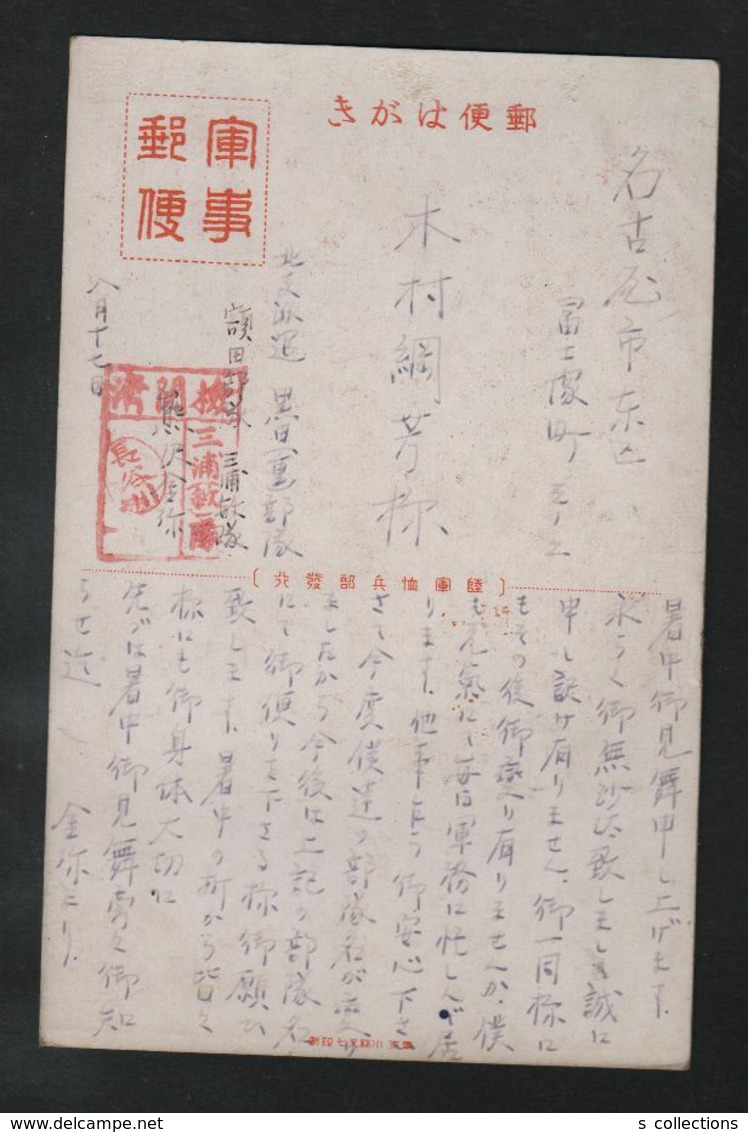 郵便はがき
軍事
郵便
名古屋市东区
冨士塚町三ノ二
木村綱芳様
北支派遣 黒田重部隊
額田部隊 三浦敏隊
熊沢金弥
八月十七日
検閲済
三浦敏隊
長谷川
〔陸軍恤兵部發行〕
暑中御見舞申し上げます。
永らく御無沙汰致しまして誠に
申し訳け有りません、御一同様に
もその後御変り有りませんか、僕
も元氣にて毎日軍務に忙しんで居
ります、他事乍ら御安心下さい
さて今度僕達の部隊名が変り
ましたから今後は上記の部隊名
にて御便りを下さる様御願ひ
致します、暑中の折から皆々
様にも御身体大切に
先づは暑中御見舞旁々御知
らせ迄
金弥より